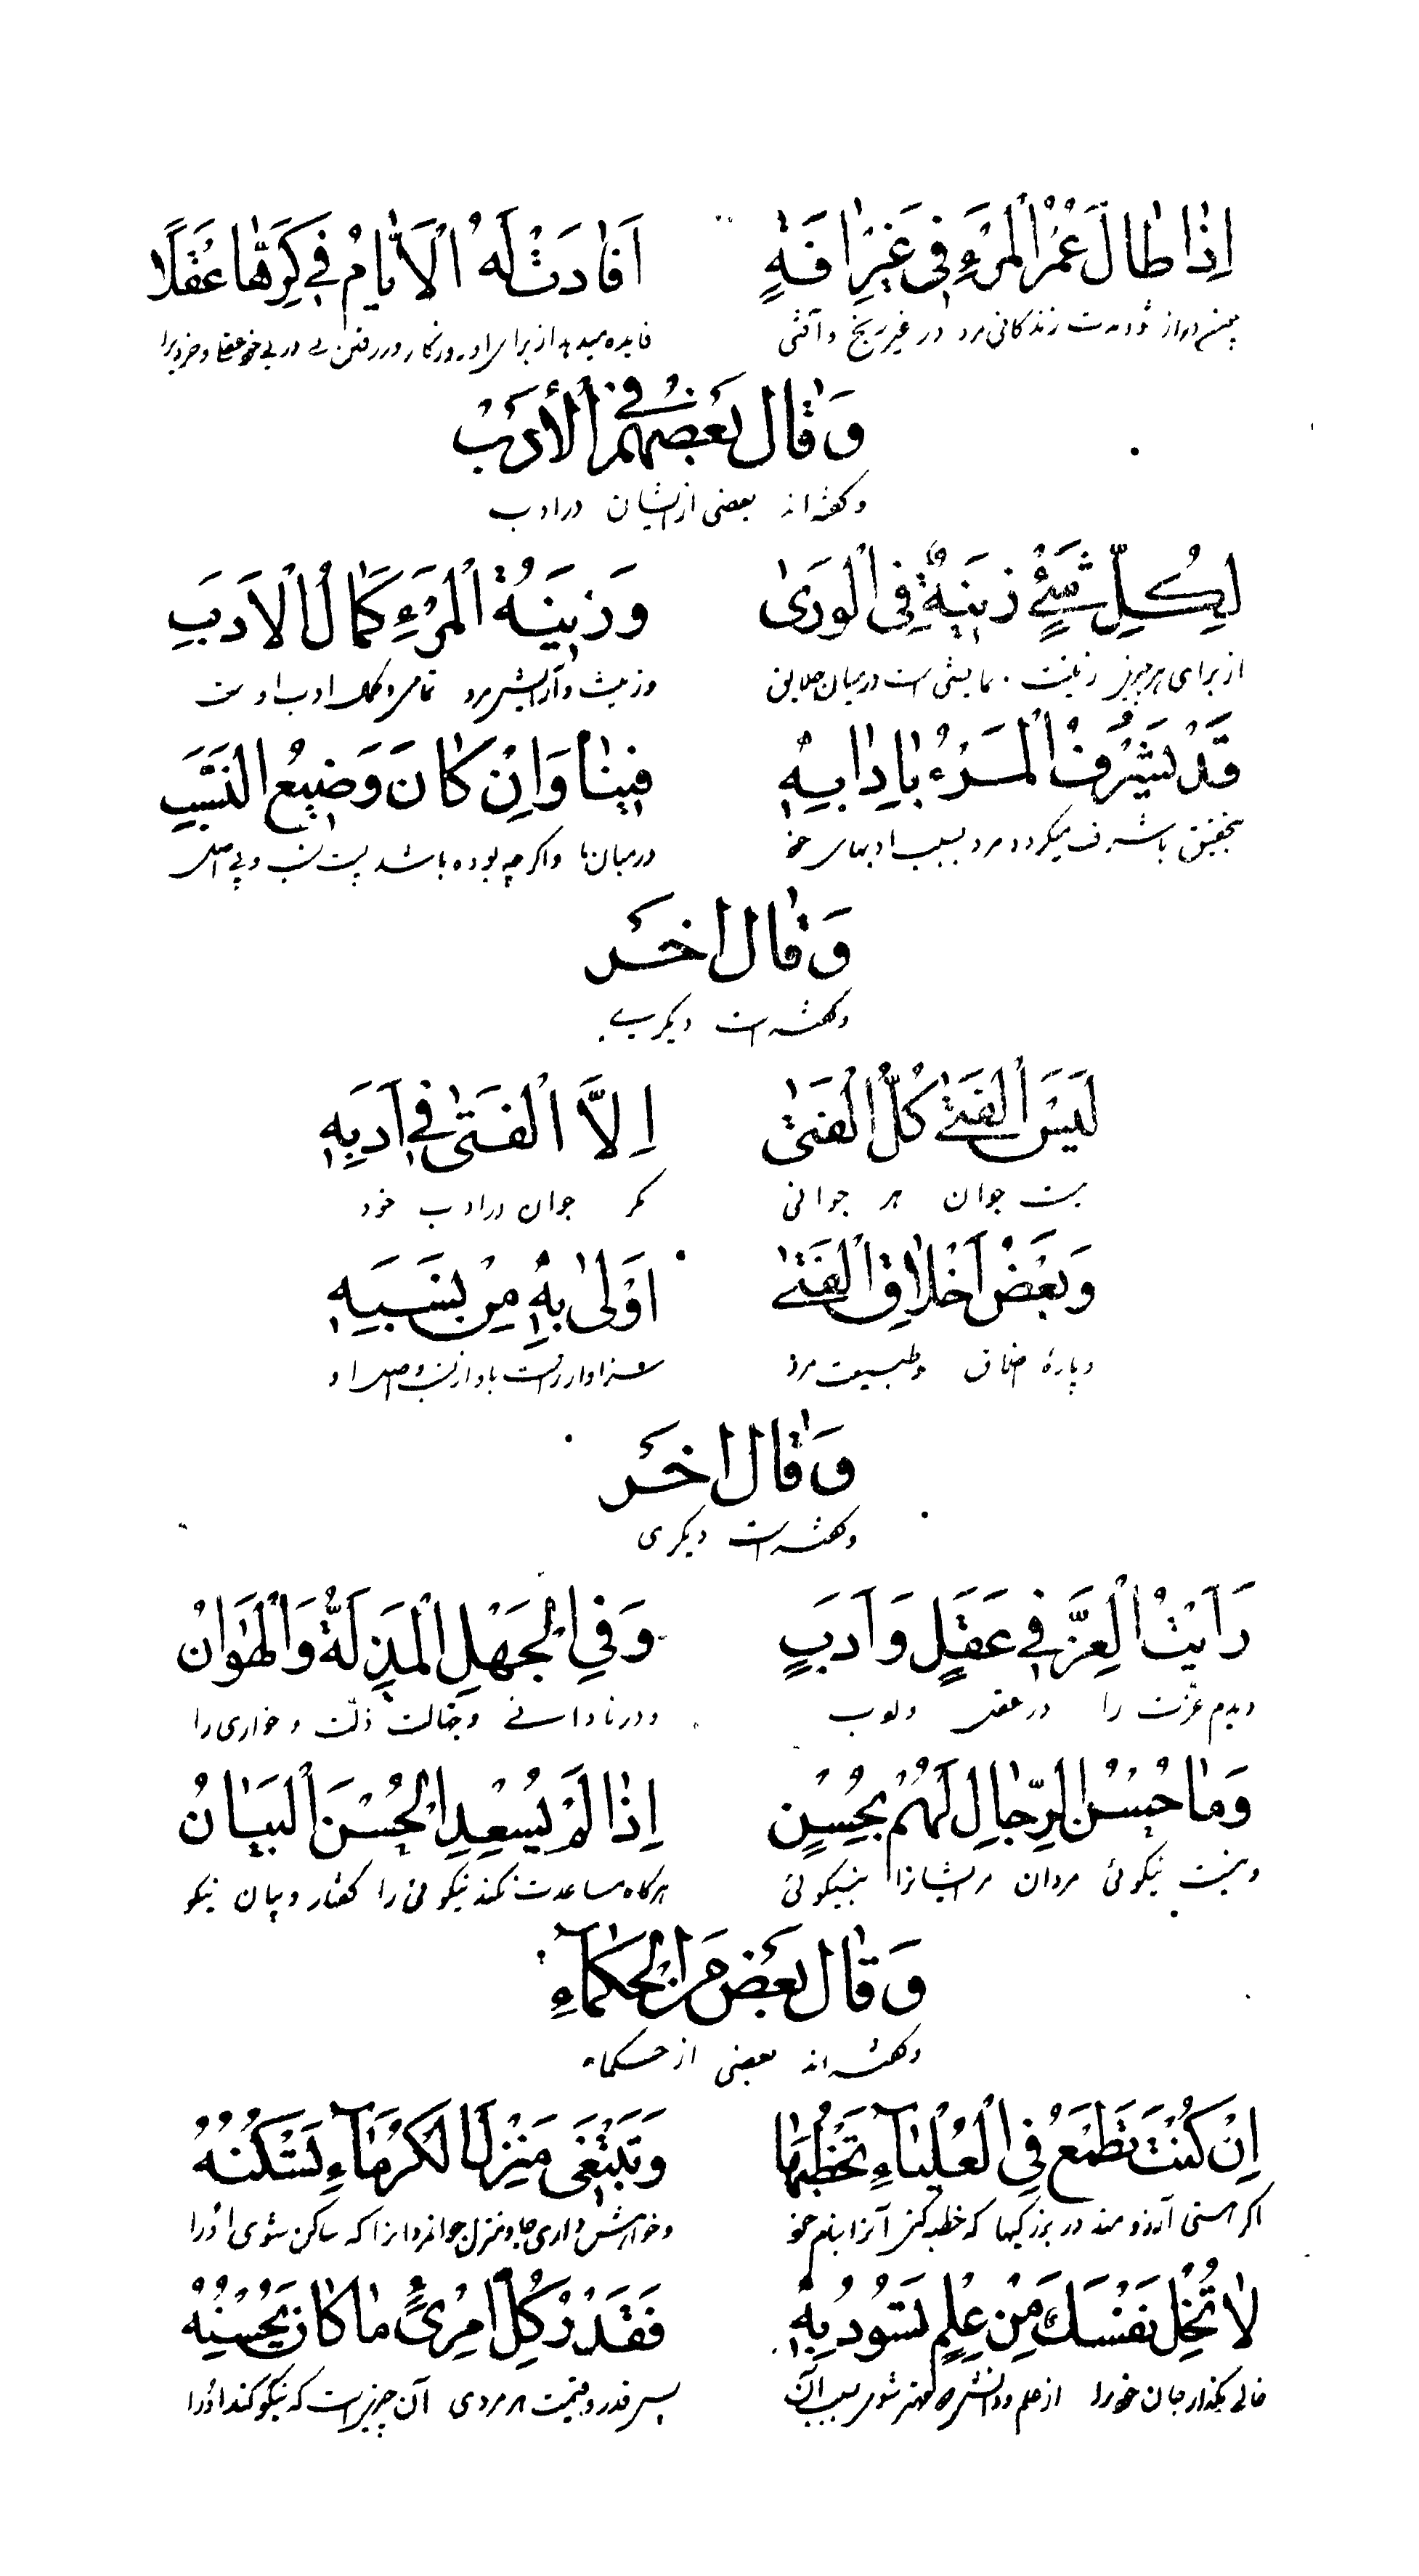 اِذٰا طٰالَ عُمْرُ الْمَرْءِ فِي غَيْرِ اٰفَةٍ اَفٰادَتْ لَهُ الْاَيّٰامُ فِي كَرِّهٰا عَقْلًا
چون دراز شود مدت زندكانی مرد در غیر رنج و آفتی فایده میدهد از برای او روزكار در رفتن
وَقٰالَ بَعْضُهُمْ فِي الْأَدَبْ
و كفته اند بعضی از ایشان در ادب
لِكُلِّ شَيْءٍ زِينَةٌ فِي الْوَرىٰ وَزِينَةُ الْمَرْءِ كَمٰالُ الْاَدَبِ
از برای هر چیز زینت نمایشی است در میان خلایق و زینت و آرایش مرد تمامی و كمال ادب اوست
قَدْ يَشْرُفُ الْمَرْءُ بِاٰدٰابِهِ فِينٰا وَاِنْ كٰانَ وَضِيعَ النَّسَبِ
بتحقیق با شرف میكردد مرد بسبب ادبهای خود در میان ما و اكر چه بوده باشد پست نسب و بی اصل
وَقٰالَ اخَر
و كفته است دیكری
لَيْسَ الْفَتىٰ كُلُّ الْفَتىٰ اِلَّا الْفَتىٰ فِي اَدَبِهِ
نیست جوان هر جوانی مكر جوان در ادب خود
وَبَعْضُ اَخْلٰاقِ الْفَتىٰ اَوْلىٰ بِهِ مِنْ نَسَبِهِ
و پارهٔ اخلاق و طبیعت مرد سزاوارتر است باو از نسب و اصل او
وَقٰالَ اخَر
و كفته است دیكری
رَاَيْتُ الْعِزَّ فِي عَقْلٍ وَاَدَبٍ وَفِي الْجَهْلِ الْمَذِلَّةُ وَالْهَوٰانْ
دیدم عزّت را در عقل و ادب و در نادانی و جهالت ذلّت و خواری را
وَمٰا حُسْنُ الرِّجٰالِ لَهُمْ بِحُسْنٍ اِذٰا لَمْ يُسْعِدِ الْحُسْنَ الْبَيٰانُ
و نیست نیكوئی مردان مر ایشانرا بنیكوئی هركاه مساعدت نكند نیكوئی را كفتار و بیان نیكو
وَقٰالَ بَعْضٌ مِنَ الْحُكَمٰآءِ
و كفته اند بعضی از حكماء
اِنْ كُنْتَ تَطْمَعُ فِي الْعَلْيٰآءِ تَخْطُبُهٰا وَتَبْتَغِي مَنْزِلَ الْكُرَمٰآءِ تَسْكُنُهُ
اكر هستی آرزومند در بزركیها كه خطبه كنی آنرا بنام خود و خواهش داری جا و منزل جوانمردانرا كه ساكن شوی او را
لٰا تُخْلِ نَفْسَكَ مِنْ عِلْمٍ تَسُودُ بِهِ فَقَدْرُ كُلِّ امْرِئٍ مٰا كٰانَ يُحْسِنُهُ
خالی مكذار جان خود را از علم و دانش كه مهتر شوی بسبب آن پس قدر و قیمت هر مردی آن چیز است كه نیكو كند او را